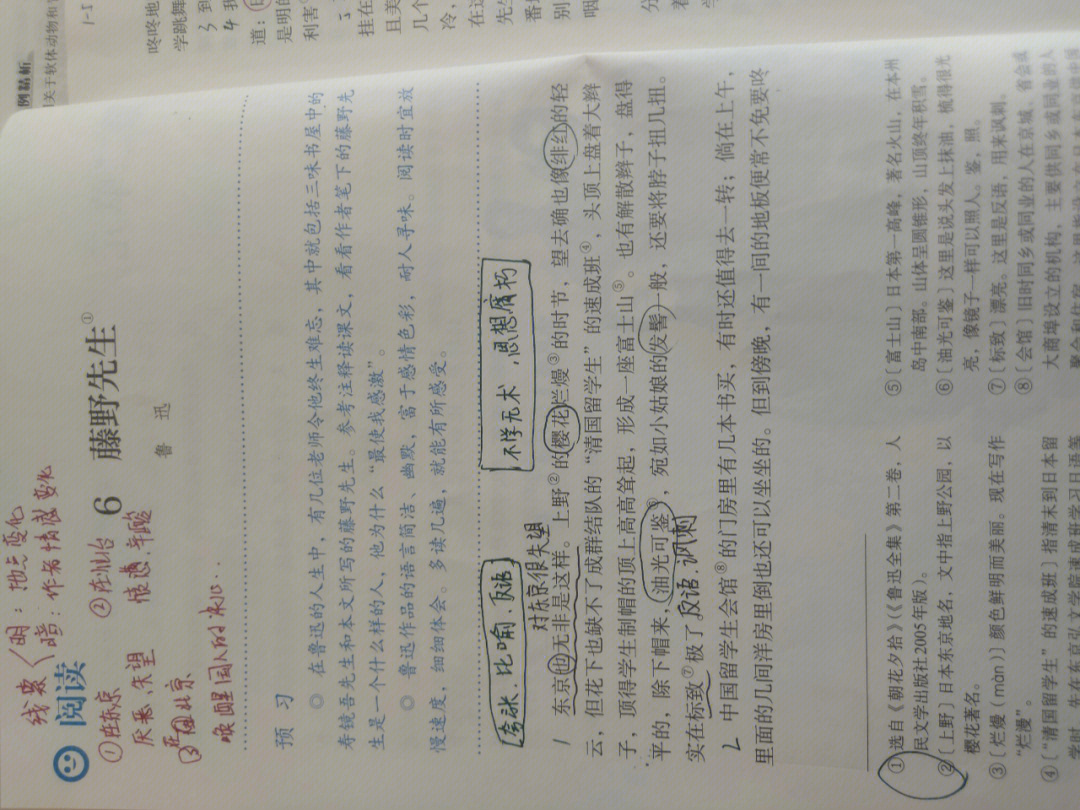 线索
明：地点变化
暗：作者情感变化
阅读
①在东京
厌恶、失望
②在仙台
③在北京
唤醒国人的
6 藤野先生①
鲁 迅
预 习
○ 在鲁迅的人生中，有几位老师令他终生难忘，其中就包括三味书屋中的
寿镜吾先生和本文所写的藤野先生。参考注释读课文，看看作者笔下的藤野先
生是一个什么样的人，他为什么“最使我感激”。
○ 鲁迅作品的语言简洁、幽默，富于感情色彩，耐人寻味。阅读时宜放
慢速度，细细体会。多读几遍，就能有所感受。
夸张 比喻、反语
不学无术，思想腐朽
对东京很失望
1 东京也无非是这样。上野②的樱花烂熳③的时节，望去确也像绯红的轻
云，但花下也缺不了成群结队的“清国留学生”的速成班④，头顶上盘着大辫
子，顶得学生制帽的顶上高高耸起，形成一座富士山⑤。也有解散辫子，盘得
平的，除下帽来，油光可鉴⑥，宛如小姑娘的发髻一般，还要将脖子扭几扭。
实在标致⑦极了 反语，讽刺
2 中国留学生会馆⑧的门房里有几本书买，有时还值得去一转；倘在上午，
里面的几间洋房里倒也还可以坐坐的。但到傍晚，有一间的地板便常不免要咚
①选自《朝花夕拾》（《鲁迅全集》第二卷，人
民文学出版社2005年版）。
②〔上野〕日本东京地名，文中指上野公园，以
樱花著名。
③〔烂熳（màn）〕颜色鲜明而美丽。现在写作
“烂漫”。
④〔“清国留学生”的速成班〕指清末到日本留
学时，先在东京弘文学院速成班学习日语等
⑤〔富士山〕日本第一高峰，著名火山，在本州
岛中南部。山体呈圆锥形，山顶终年积雪。
⑥〔油光可鉴〕这里是说头发上抹油，梳得很光
亮，像镜子一样可以照人。鉴，照。
⑦〔标致〕漂亮。这里是反语，用来讽刺。
⑧〔会馆〕旧时同乡或同业的人在京城、省会或
大商埠设立的机构，主要供同乡或同业的人
例精析
关于软体动物和
1-5
咚咚地
学跳舞
3 到
4 我
道：
是明的
利害
5
挂在
且美
几个
冷，
在这
先生
番
别
咽
分
着
学